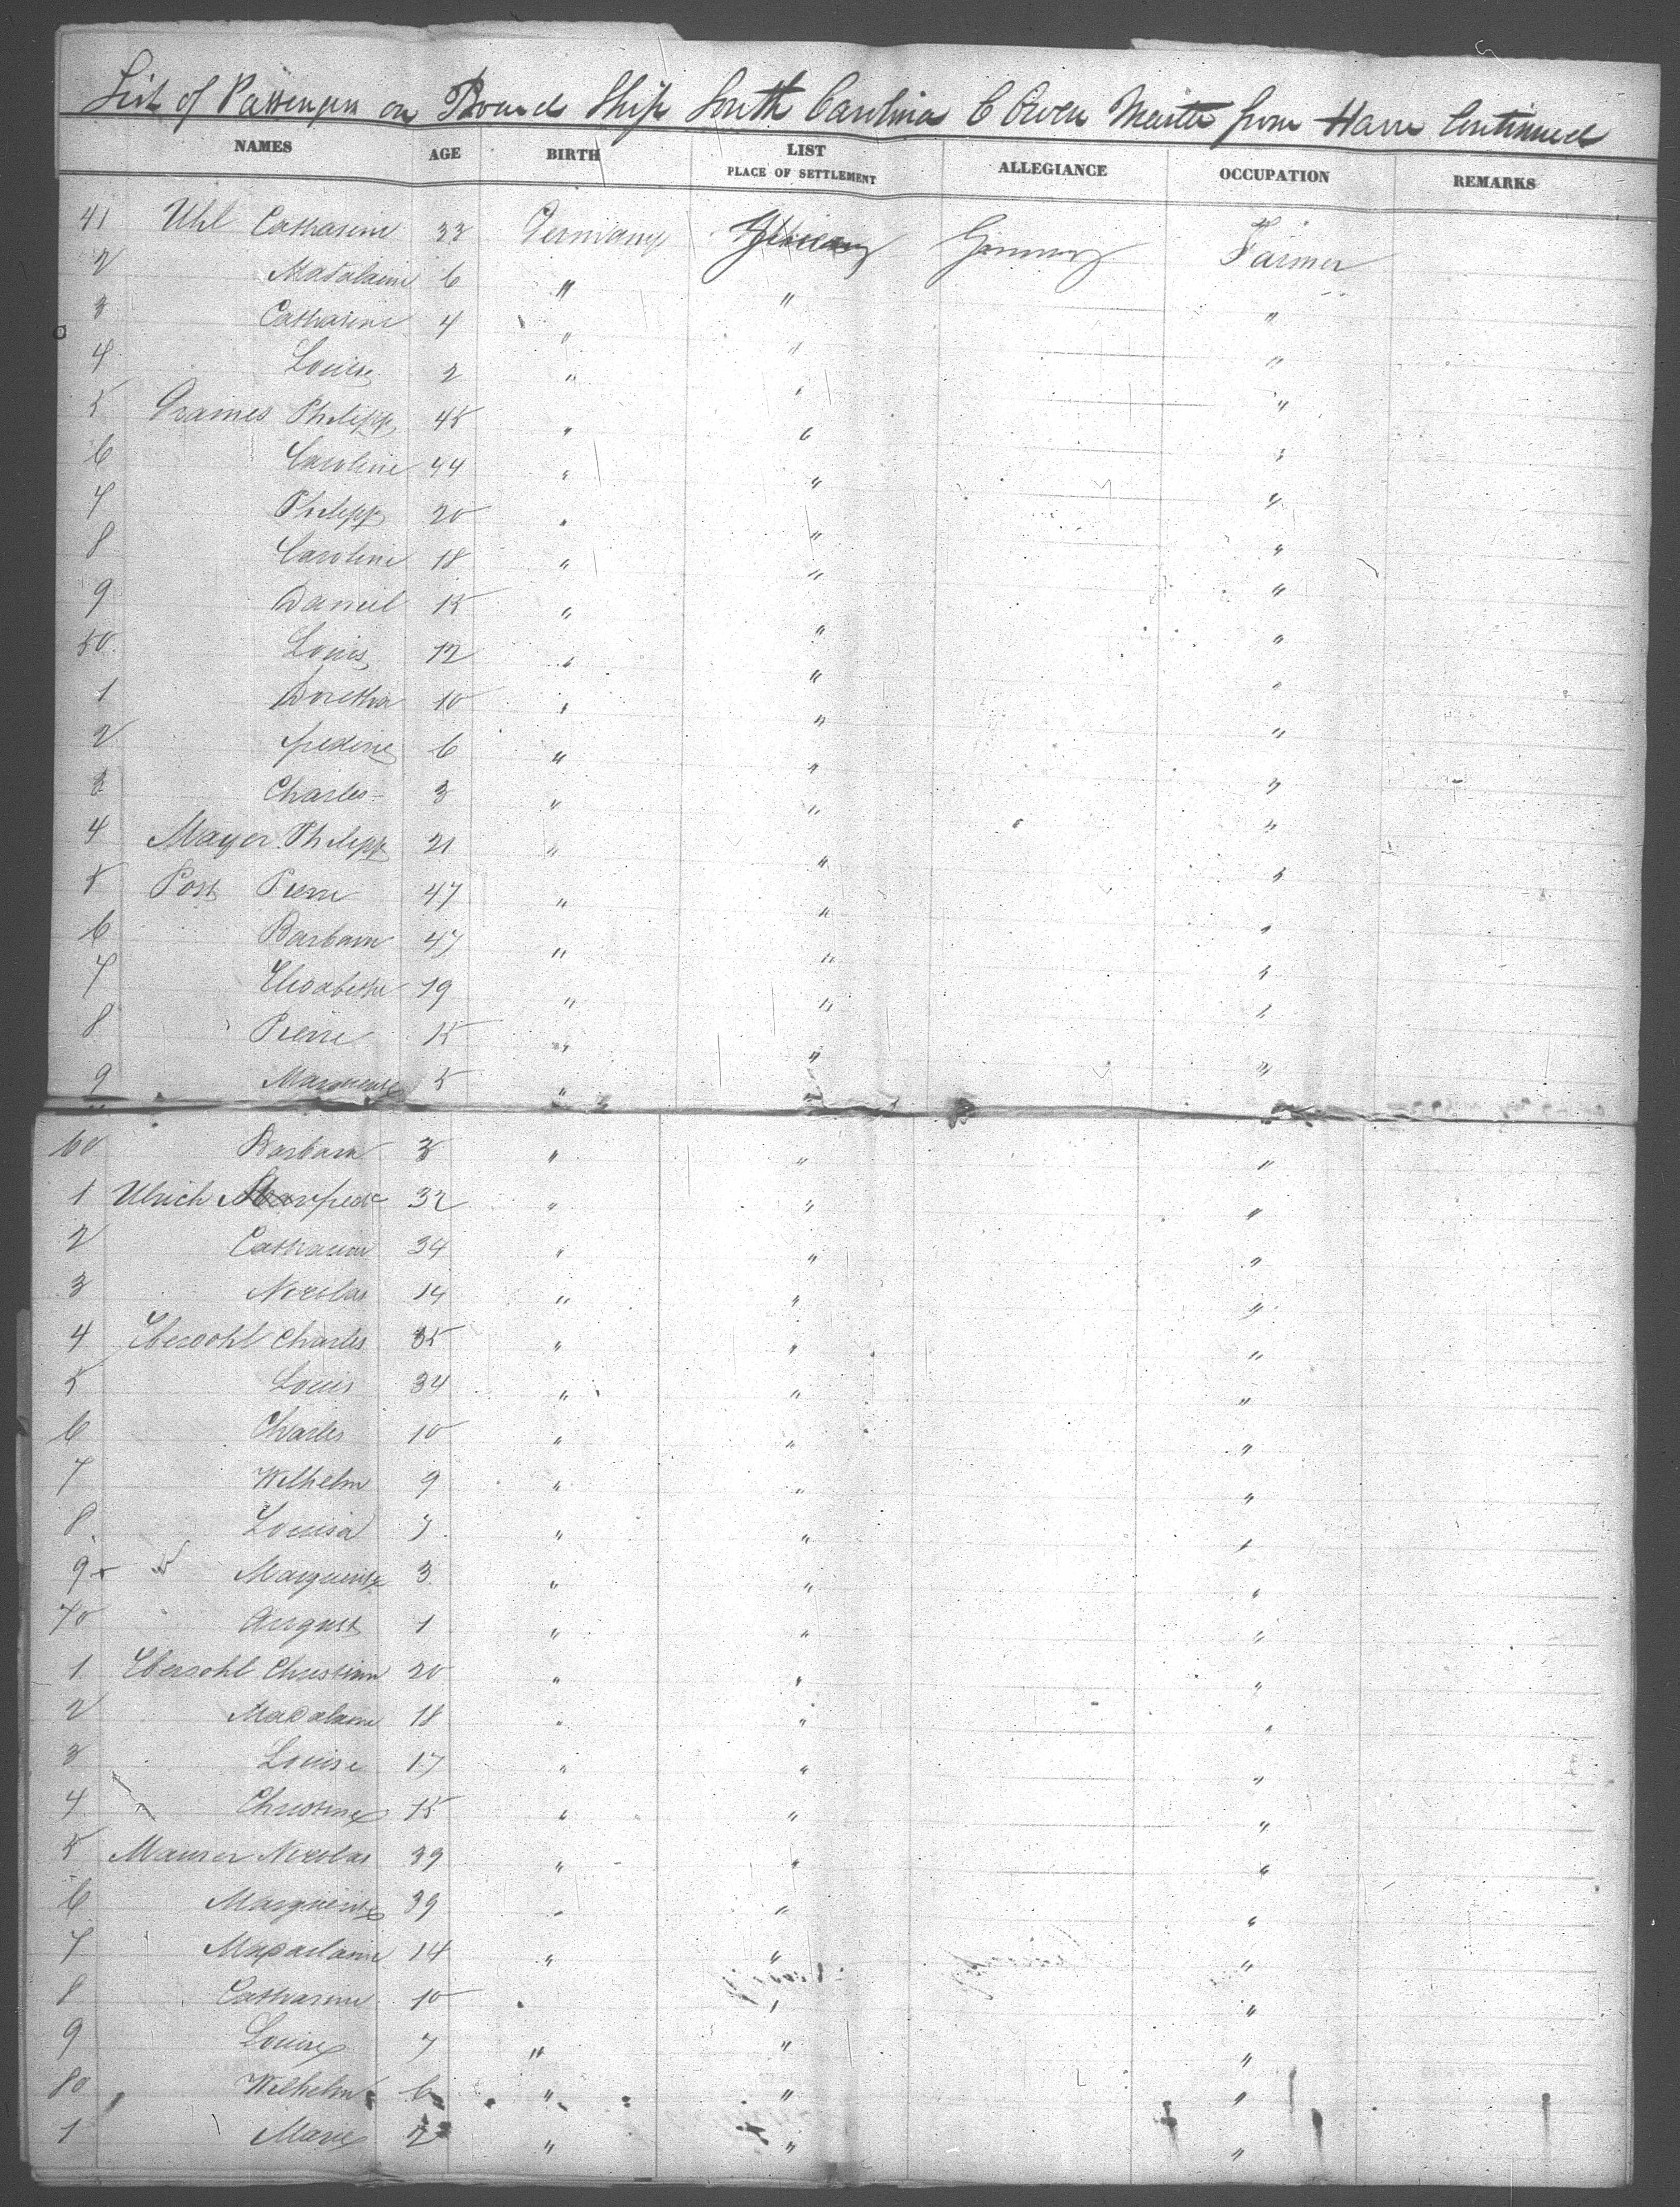 List of Passengers on Board Ship South Carolina C Owen Master from Havre Continued
NAMES AGE BIRTH LIST PLACE OF SETTLEMENT ALLEGIANCE OCCUPATION REMARKS
41 Uhl Catharine 33 Germany Germany Farmer
2 Madalaine 6 " " "
3 Catharine 4 " " "
4 Louise 2 " " "
5 Philipp 45 " " "
6 Caroline 44 " " "
7 Philipp 20 " " "
8 Caroline 18 " " "
9 Daniel 15 " " "
50 Louis 12 " " "
1 Dorethea 10 " " "
2 frederic 6 " " "
3 Charles 3 " " "
4 Mayer Philipp 21 " " "
5 Post Pierre 47 " " "
6 Barbara 47 " " "
7 Elisabetha 19 " " "
8 Pierre 15 " " "
9 Marguerite 5 " "
60 Barbara 3 " " "
1 Ulrich 32 " " "
2 Catharine 34 " " "
3 Nicolas 14 " " "
4 Ebersohl Charles 35 " " "
5 Louis 34 " " "
6 Charles 10 " " "
7 Wilhelm 9 " " "
8 Louisa 7 " " "
9 Marguerite 3 " " "
70 August 1 " " "
1 Ebersohl Christian 20 " " "
2 Madalaine 18 " " "
3 Louise 17 " " "
4 Christine 15 " " "
5 Maurer Nicolas 39 " " "
6 Marguerite 39 " " "
7 Madalaine 14 " " "
8 Catharine 10 " " "
9 Louise 7 " " "
80 Wilhelm 6 " " "
1 Marie 2 " " "